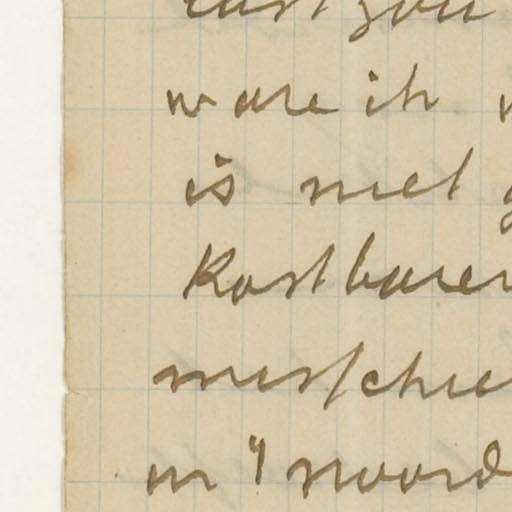 rust zou
ware ik
is niet
Kostbaren
misschie
in 't noord